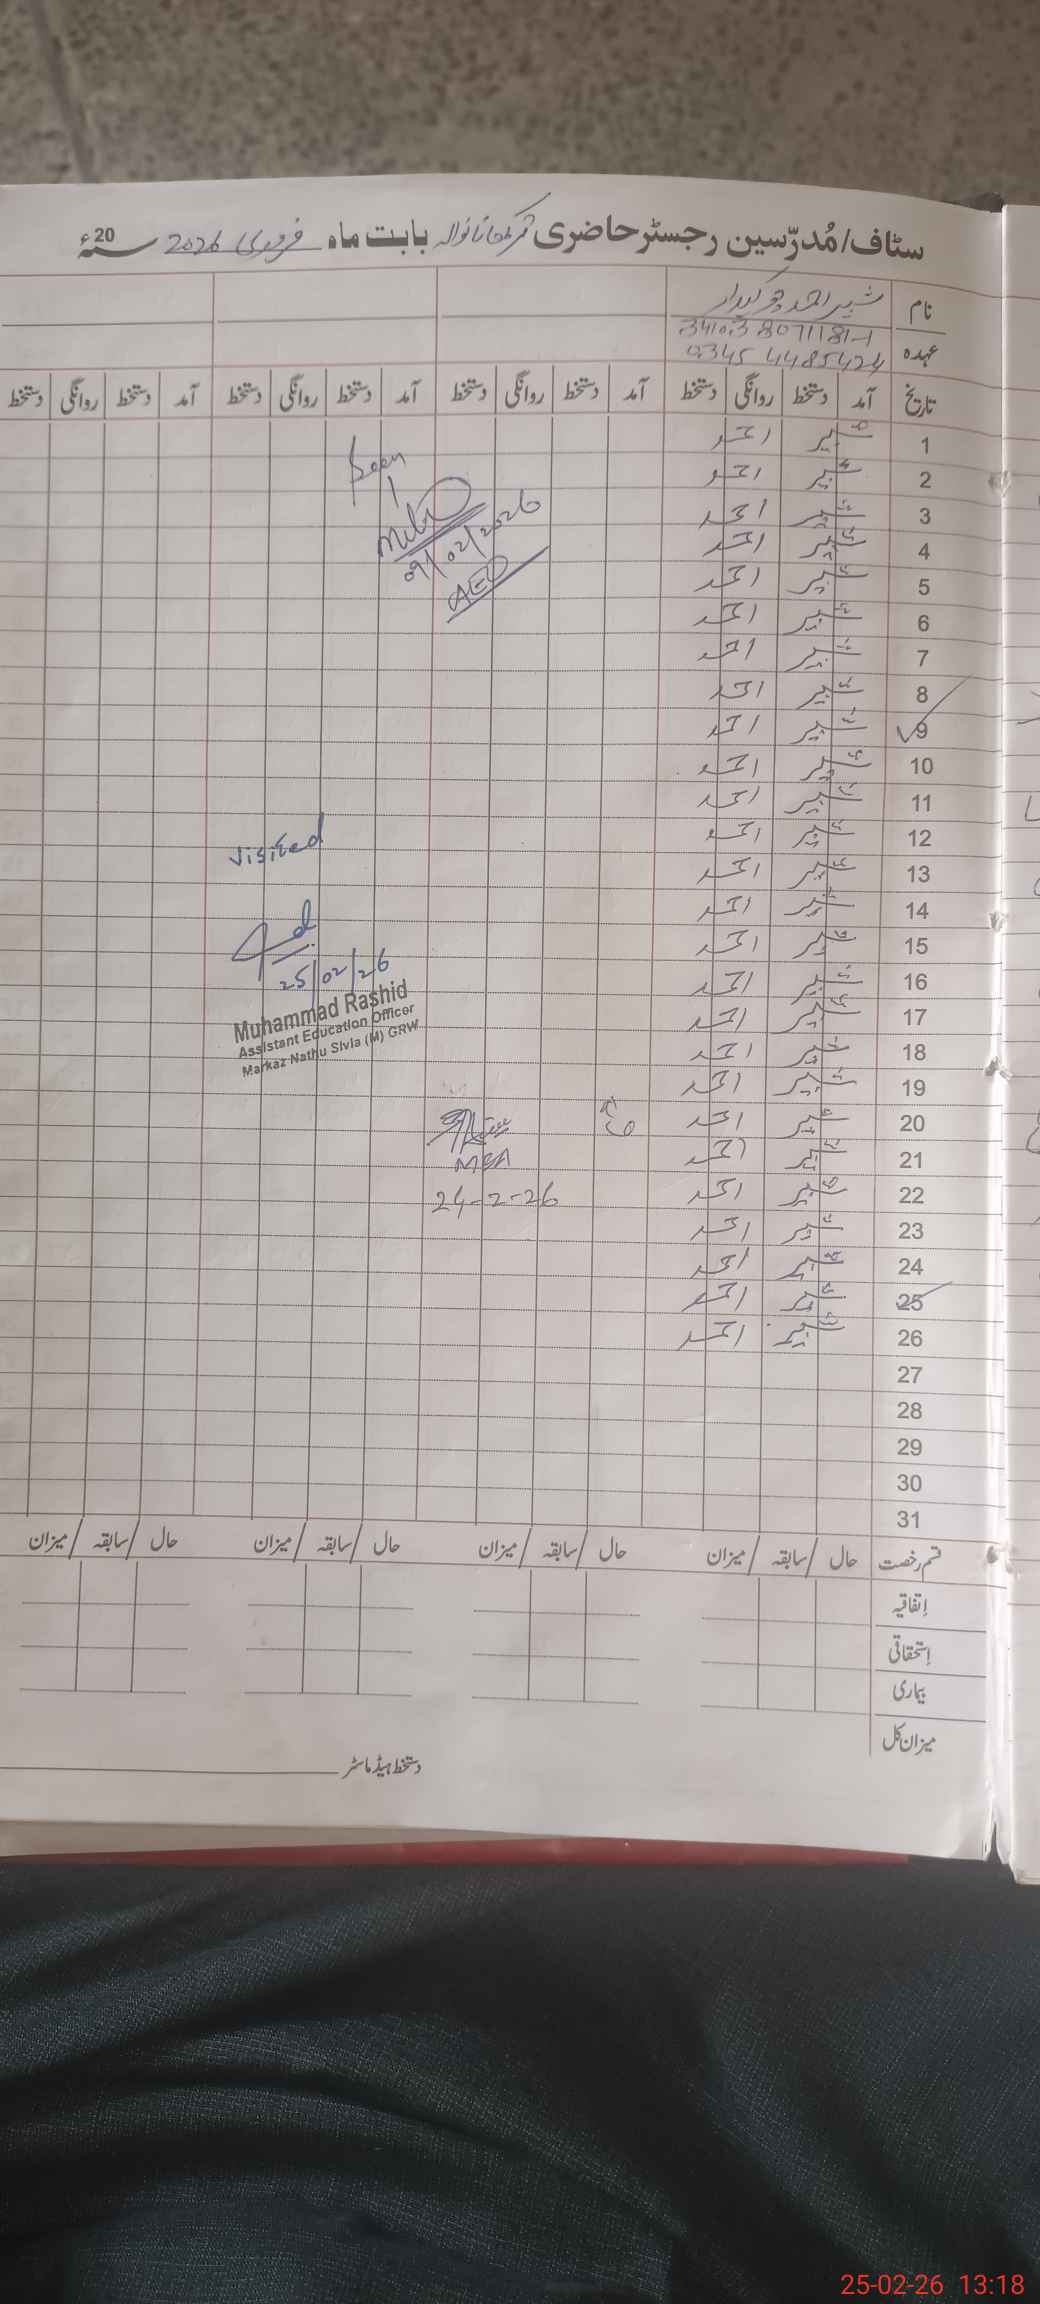 سٹاف/مُدرّسین رجسٹر حاضری بابت ماہ فروری 2026 20سنہء
نام شبیر احمد چوکیدار
34103 8071181-1
عہدہ 0345 4485424
تاریخ آمد دستخط روانگی دستخط آمد دستخط روانگی دستخط آمد دستخط روانگی دستخط آمد دستخط روانگی دستخط
1 شبیر احمد
2 شبیر احمد
3 شبیر احمد
4 شبیر احمد
5 شبیر احمد
6 شبیر احمد
7 شبیر احمد
8 شبیر احمد
9 شبیر احمد
10 شبیر احمد
11 شبیر احمد
12 شبیر احمد
13 شبیر احمد
14 شبیر احمد
15 شبیر احمد
16 شبیر احمد
17 شبیر احمد
18 شبیر احمد
19 شبیر احمد
20 شبیر احمد
21 شبیر احمد
22 شبیر احمد
23 شبیر احمد
24 شبیر احمد
25 شبیر احمد
26 شبیر احمد
27
28
29
30
31
Seen
09/02/2026
AEO
Visited
25/02/26
Muhammad Rashid
Assistant Education Officer
Markaz Nathu Sivia (M) GRW
MEA
24-2-26
قسم رخصت حال / سابقہ / میزان حال / سابقہ / میزان حال / سابقہ / میزان حال / سابقہ / میزان
اِتفاقیہ
اِستحقاقی
بیماری
میزان کل
دستخط ہیڈ ماسٹر
25-02-26 13:18